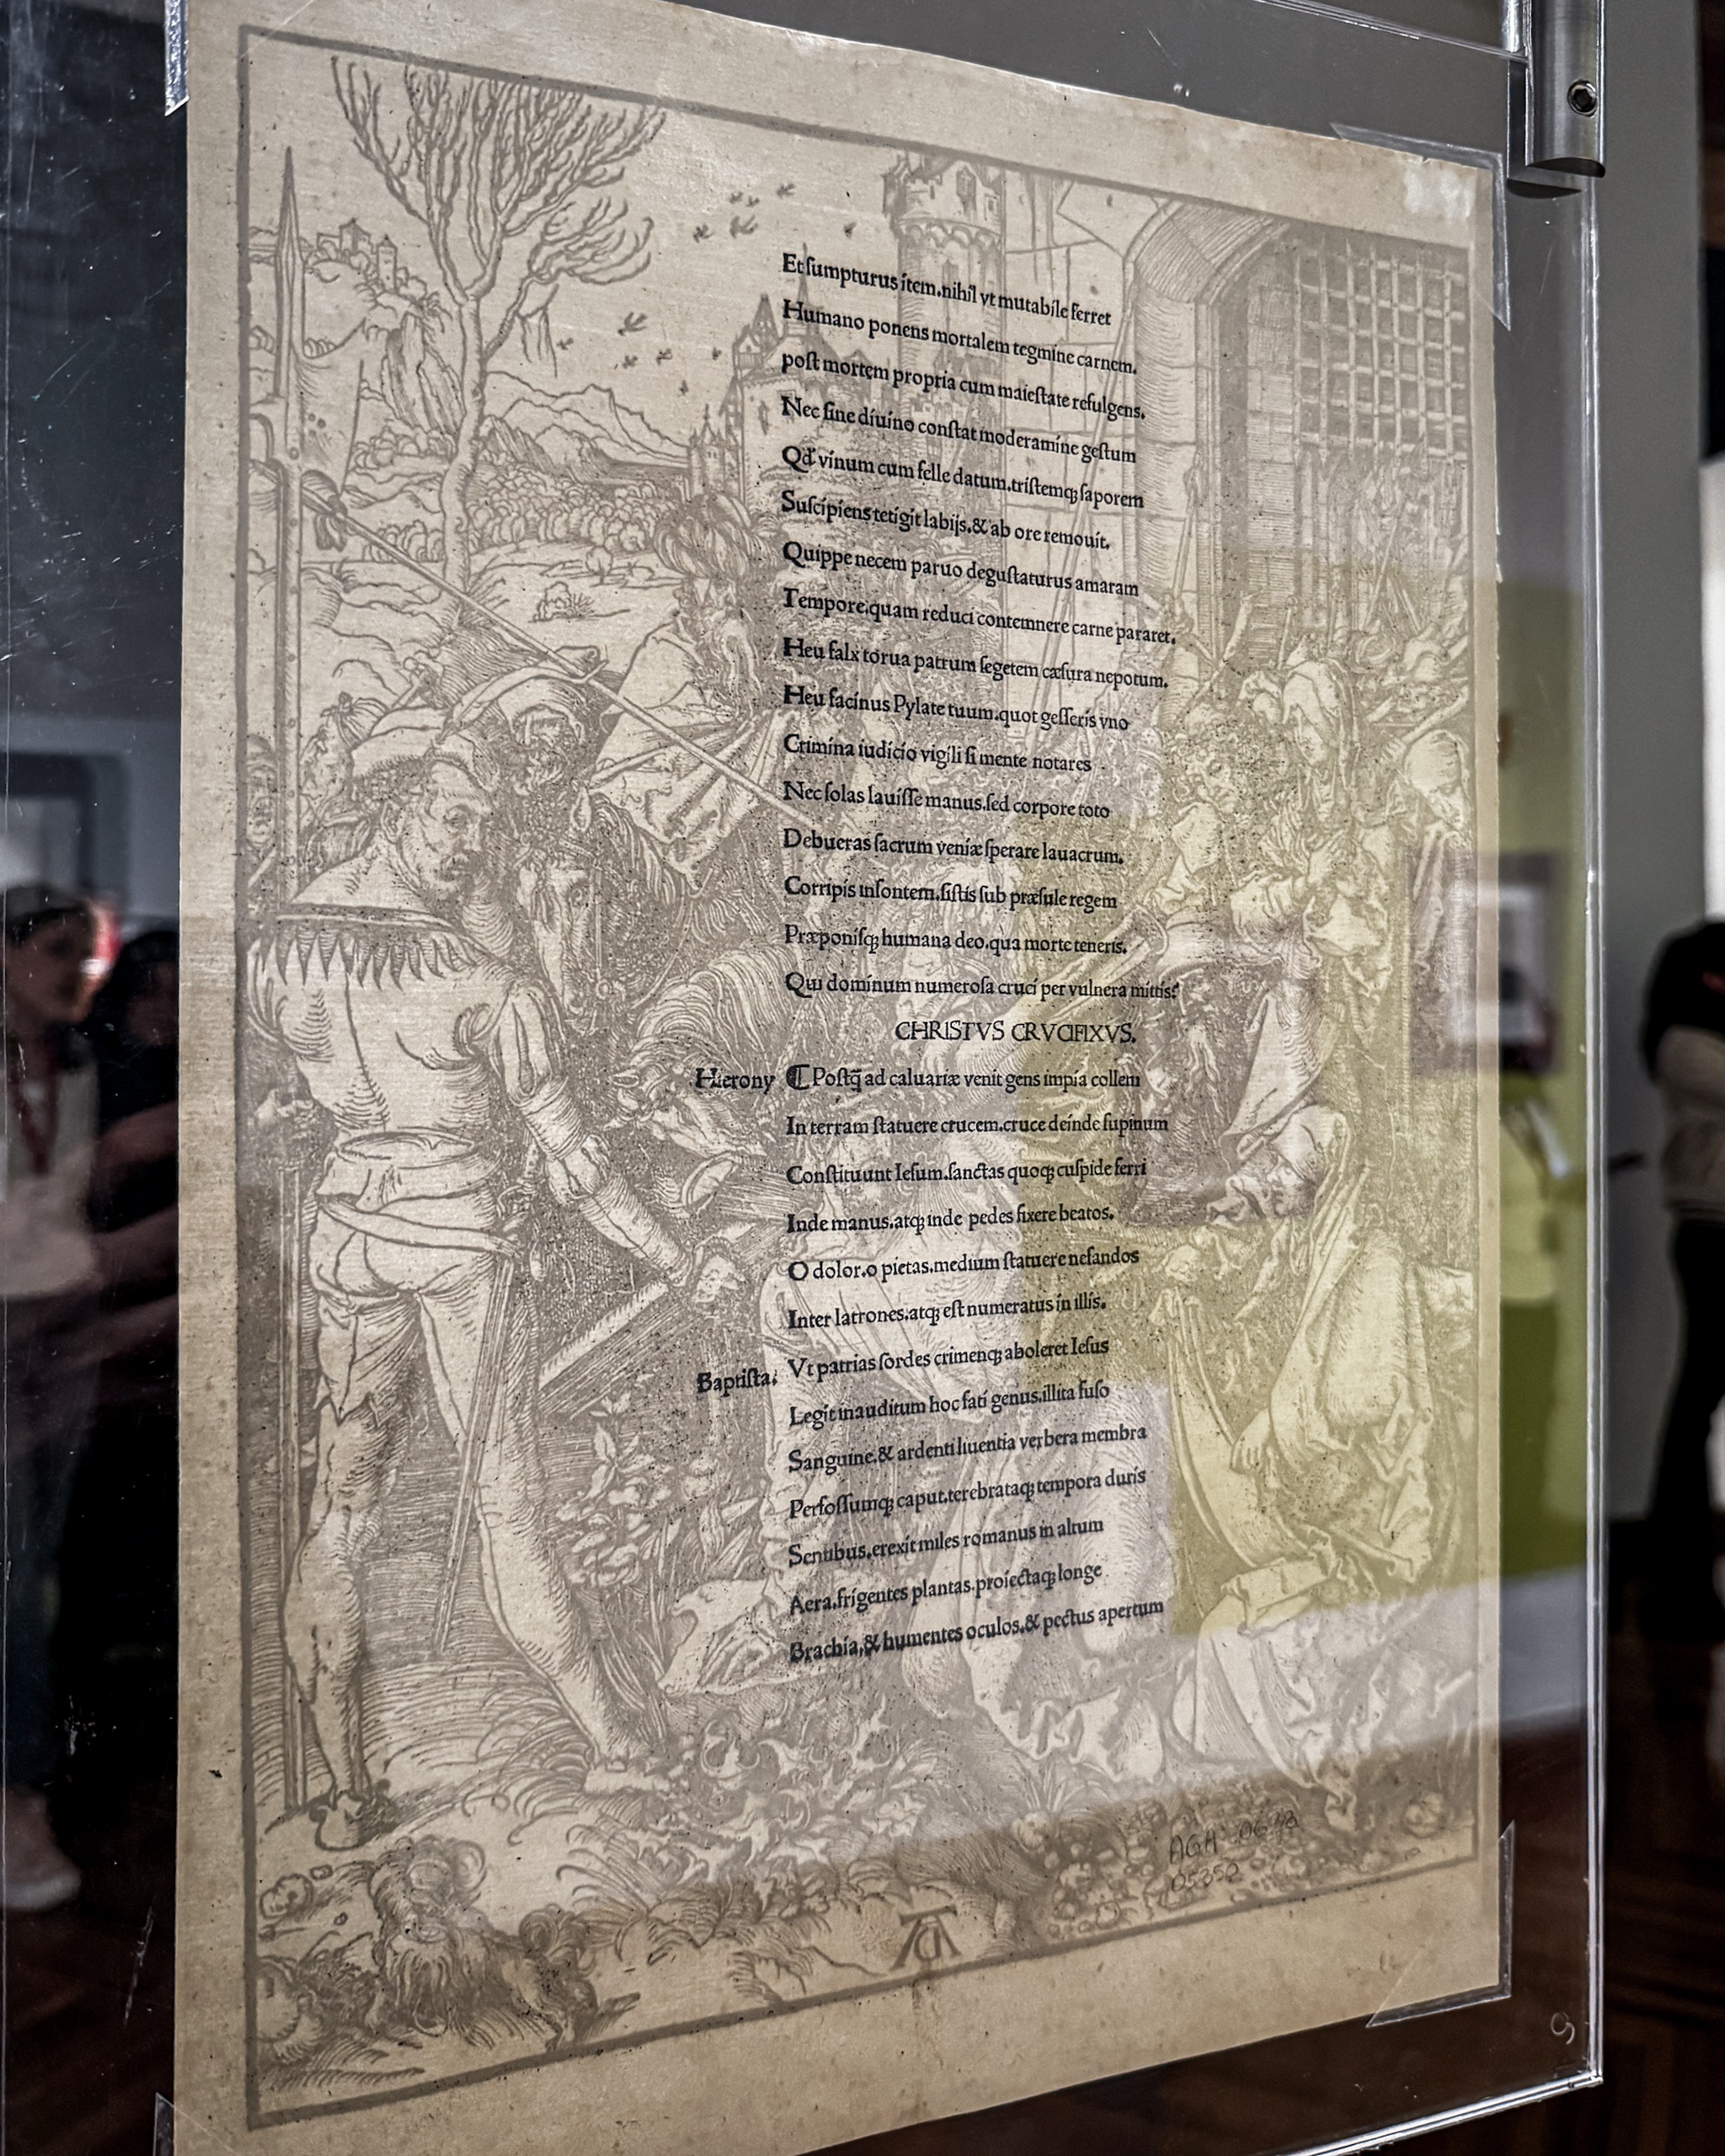 Et ſumpturus item.nihil vt mutabile ferret
Humano ponens mortalem tegmine carnem.
poſt mortem propria cum maieſtate refulgens.
Nec ſine diuino conſtat moderamine geſtum
Qđ vinum cum felle datum.triſtemqꝫ ſaporem
Suſcipiens tetigit labijs.& ab ore remouit.
Quippe necem paruo deguſtaturus amaram
Tempore.quam reduci contemnere carne pararet.
Heu falx torua patrum ſegetem cæſura nepotum.
Heu facinus Pylate tuum.quot geſſeris vno
Crimina iudicio vigili ſi mente notares
Nec ſolas lauiſſe manus.ſed corpore toto
Debueras ſacrum veniæ ſperare lauacrum.
Corripis inſontem.ſiſtis ſub præſule regem
Præponiſqꝫ humana deo.qua morte teneris.
Qui dominum numeroſa cruci per vulnera mittis?
CHRISTVS CRVCIFIXVS.
Hierony ⁋ Poſtq̄ ad caluariæ venit gens impia collem
In terram ſtatuere crucem.cruce deinde ſupinum
Conſtituunt Ieſum.ſanctas quoqꝫ cuſpide ferri
Inde manus.atqꝫ inde pedes fixere beatos.
O dolor.o pietas.medium ſtatuere nefandos
Inter latrones.atqꝫ eſt numeratus in illis.
Baptiſta. Vt patrias ſordes crimenqꝫ aboleret Ieſus
Legit inauditum hoc fati genus.illita fuſo
Sanguine.& ardenti liuentia verbera membra
Perfoſſumqꝫ caput.terebrataqꝫ tempora duris
Sentibus.erexit miles romanus in altum
Aera.frigentes plantas.proiectaqꝫ longe
Brachia,& humentes oculos.& pectus apertum
AGA
05352
AD